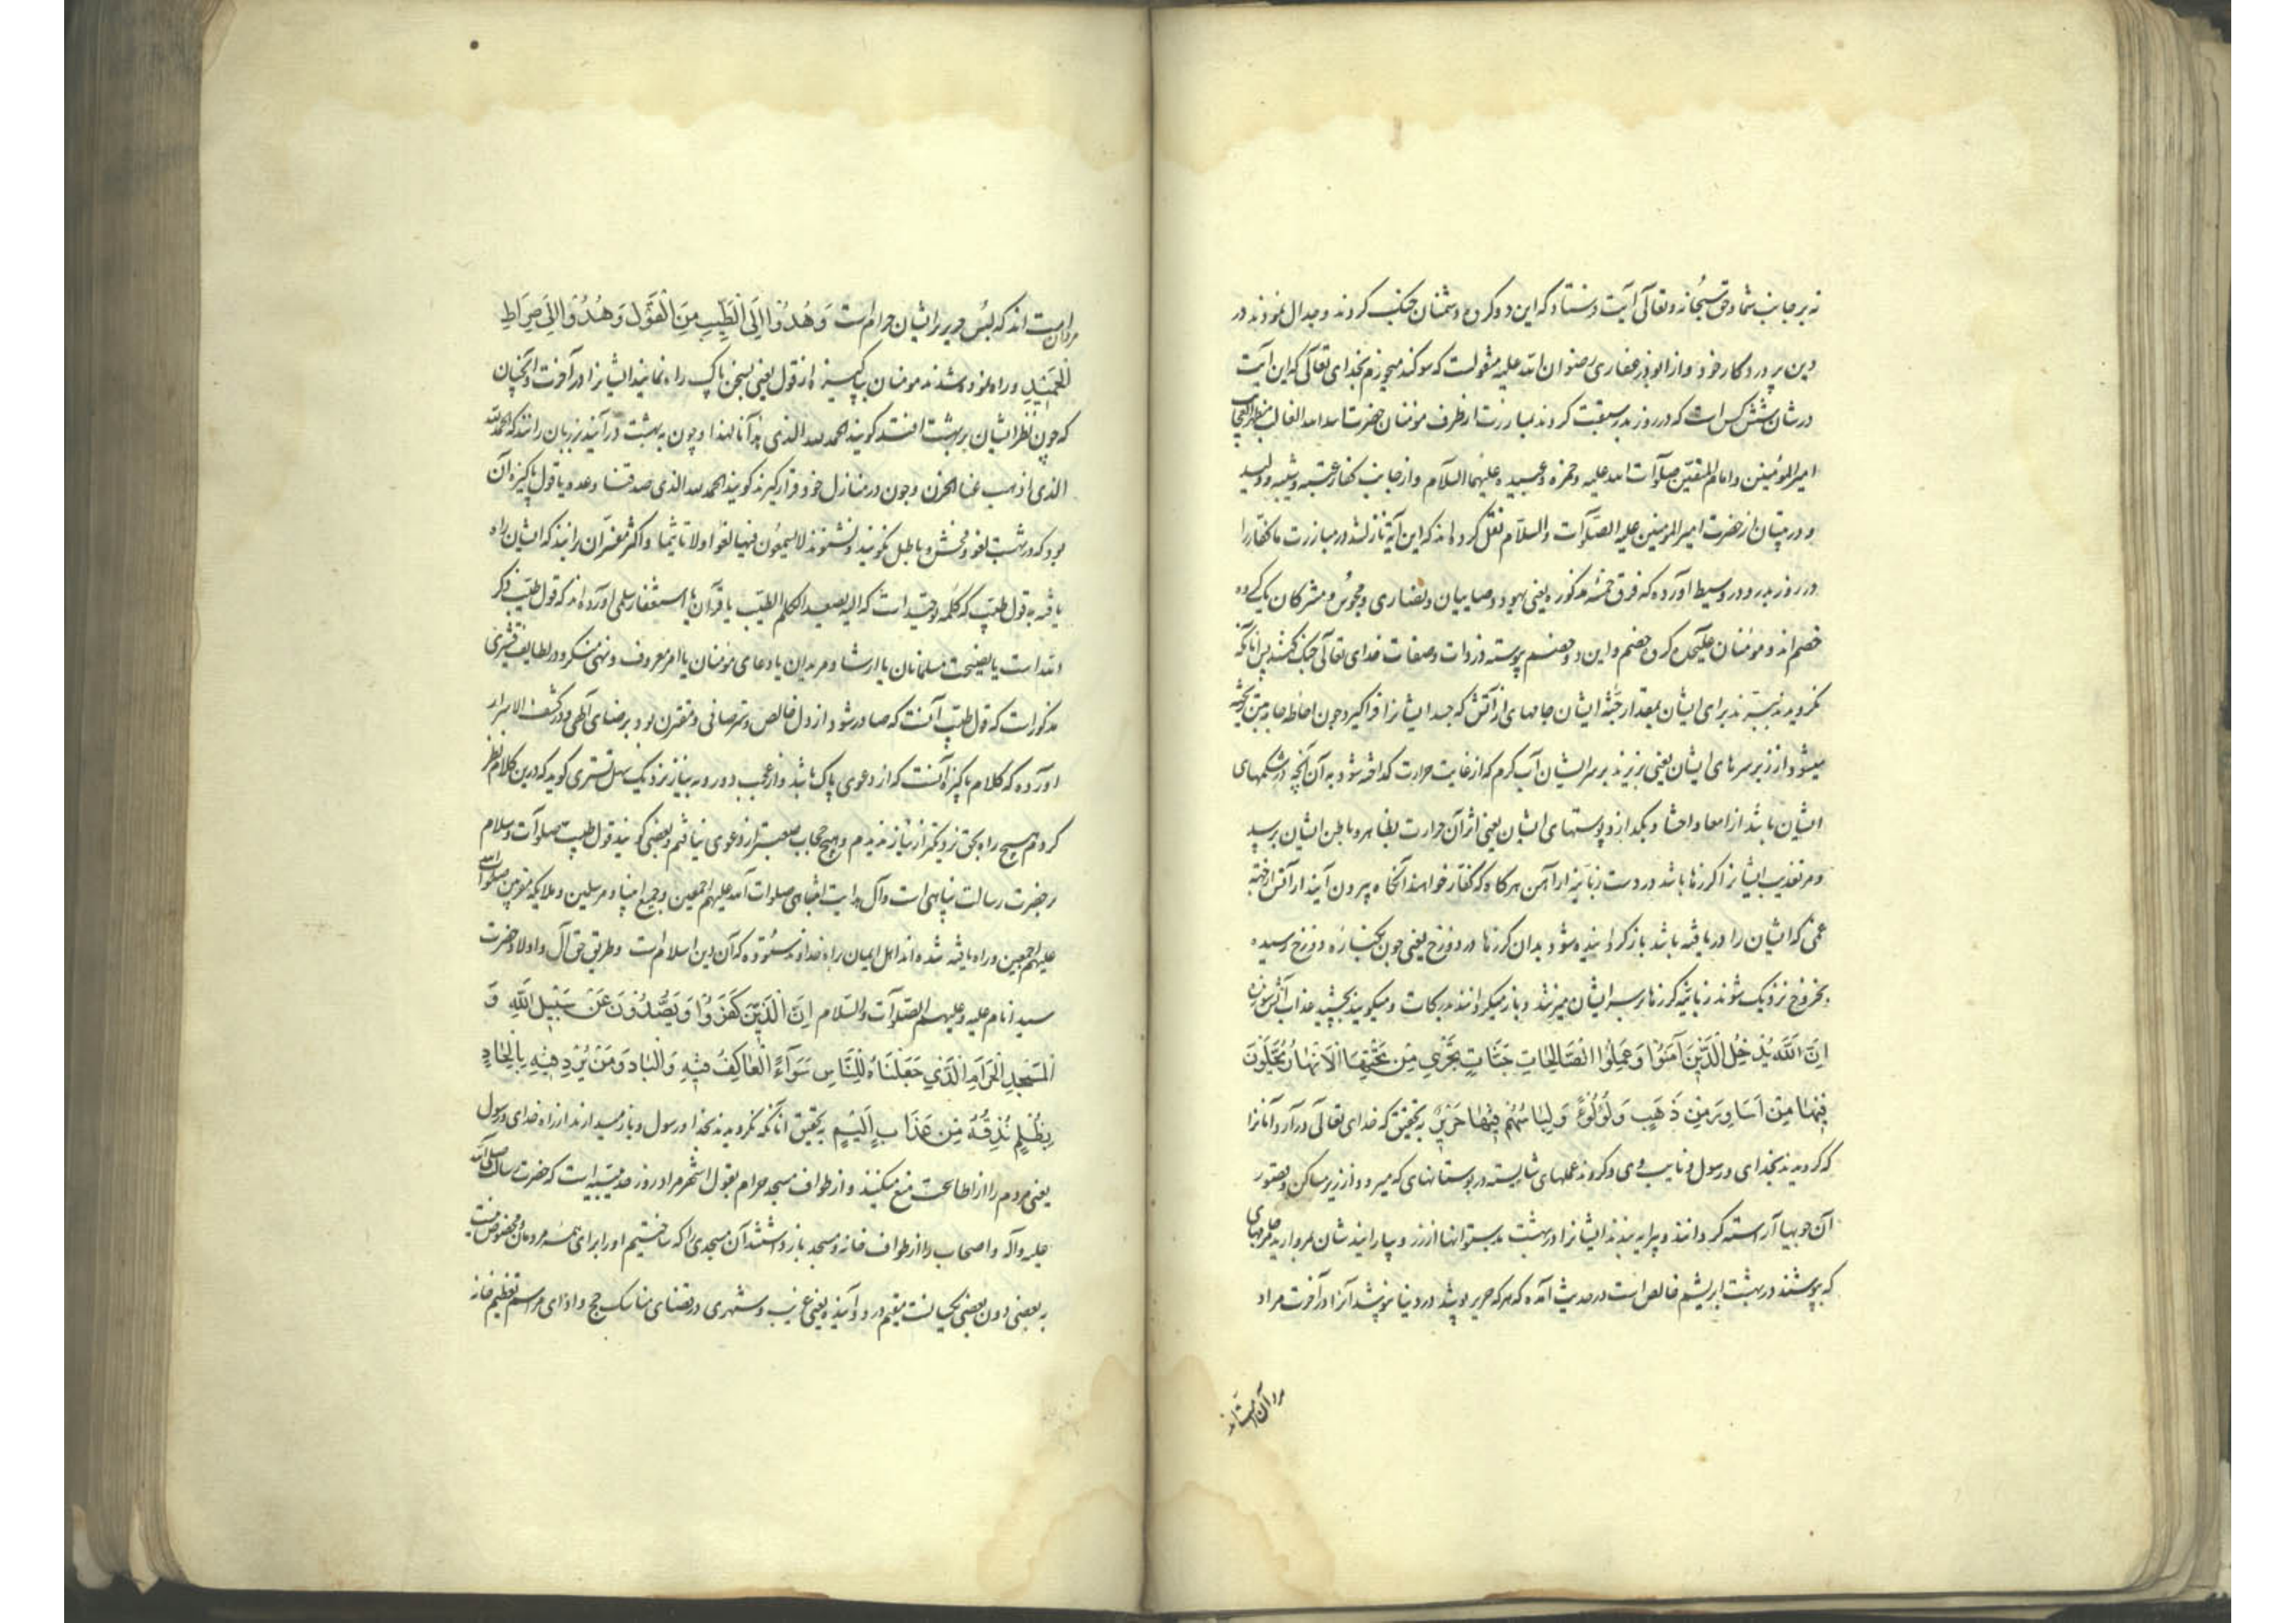 نه بر جانب شما و حق سبحانه و تعالی آیت فرستاد که این دو کروه دشمنان جنک کردند و جدال نمودند در
دین پروردکار خود و از ابوذر غفاری رضوان الله علیه منقولست که سوکند میخورم بخدای تعالی که این آیت
در شان شش کس است که در روز بدر سبقت کردند بمبارزت از طرف مومنان حضرت اسد الله الغالب مظهر العجایب
امیر المؤمنین و امام المتقین صلوات الله علیه و حمزه و عبیده علیهما السلام و از جانب کفار عتبه و شیبه و ولید
و در تبیان از حضرت امیر المومنین علیه الصلوات و السلام نقل کرده اند که این آیه نازل شد در مبارزت ما کفار را
در روز بدر و در وسیط آورده که فرق خمسه مذکوره یعنی یهود و صابیان و نصاری و مجوس و مشرکان یکی ده
خصم اند و مومنان علیحده کروه خصم و این دو خصم پیوسته در ذات و صفات خدای تعالی جنک کنند پس آنانکه
نکرویدند ببرند برای ایشان بمقدار جثه ایشان جامهای از آتش که جسد ایشانرا فرا کیرد چون احاطه جامه بتن ریخته
میشود از زبر سرهای ایشان یعنی بریزند بر سر ایشان آب کرم که از غایت حرارت کداخته شود به آن آنچه در شکمهای
ایشان باشد از امعا و احشا و بکدازد پوستهای ایشان یعنی اثر آن حرارت بظاهر و باطن ایشان برسد
و مر تعذیب ایشانرا کرزها باشد در دست زبانیه از آهن هر کاه که کفار خواهند آنکاه بیرون آیند از آتش از جهة
غمی که ایشان را دریافته باشد باز کردانیده شود بدان کرزها در دوزخ یعنی چون بکناره دوزخ رسیده
بخروج نزدیک شوند زبانیه کرزها بر سر ایشان میزنند و باز میکردانند بدرکات و میکویند بچشید عذاب آتش سوزنده
اِنَّ اللّٰهَ یُدْخِلُ الَّذِینَ آمَنُوا وَعَمِلُوا الصَّالِحَاتِ جَنَّاتٍ تَجْرِی مِنْ تَحْتِهَا الْاَنْهَارُ یُحَلَّوْنَ
فِیهَا مِنْ اَسَاوِرَ مِنْ ذَهَبٍ وَلُؤْلُؤًا وَلِبَاسُهُمْ فِیهَا حَرِیرٌ بتحقیق که خدای تعالی درآرد آنانرا
که کرویدند بخدای و رسول و نایب وی و کردند عملهای شایسته در بوستانهای که میرود از زیر مساکن و قصور
آن جویها آراسته کردانند و پیرایه بندند ایشانرا در بهشت بدستوانها از زر و بیارایند شان بمروارید جامهای
که پوشند در بهشت ابریشم خالص است در حدیث آمده که هر که حریر پوشد در دنیا نپوشد آنرا در آخرت مراد
مردان امت اند
مردان امت اند که لبس حریر بر ایشان حرام است وَهُدُوا اِلَی الطَّیِّبِ مِنَ الْقَوْلِ وَهُدُوا اِلَی صِرَاطِ
الْحَمِیدِ و راه نموده شدند مومنان بپاکیزه از قول یعنی بسخن پاک راه نمایند ایشانرا در آخرت و آنچنان
که چون نظر ایشان بر بهشت افتد کویند الحمد لله الذی هدانا لهذا و چون به بهشت درآیند بر زبان رانند که الحمد لله
الذی اذهب عنا الحزن و چون در منازل خود قرار کیرند کویند الحمد لله الذی صدقنا وعده یا قول پاکیزه آن
بود که در بهشت لغو و فحش و باطل نکویند و نشنوند لا یسمعون فیها لغوا ولا تاثیما و اکثر مفسران برانند که ایشان راه
یافته به قول طیب که کلمه توحید است که الیه یصعد الکلم الطیب یا قرآن یا استغفار سلمی آورده اند که قول طیب ذکر
الله است یا نصیحت مسلمانان یا ارشاد مریدان یا دعای مومنان یا امر معروف و نهی منکر و در لطایف قشیری
مذکور است که قول طیب آنست که صادر شود از دل خالص و سر صافی و مقترن بود برضای الهی و در کشف الاسرار
آورده که کلام پاکیزه آنست که از دعوی پاک باشد و از عجب دور و به نیاز نزدیک سهل تستری کوید که درین کلام نظر
کردم هیچ راه بحق نزدیکتر از نیاز ندیدم و هیچ حجاب صعبتر از دعوی نیافتم و بعضی کویند قول طیب صلوات و سلام
بر حضرت رسالت پناهی است و آل هدایت انتباهی صلوات الله علیهم اجمعین و جمیع انبیا و مرسلین و ملایکه مقربین صلوات الله
علیهم اجمعین و راه یافته شده اند اهل ایمان براه خداوند ستوده که آن دین اسلام است و طریق حق آل و اولاد حضرت
سید انام علیه و علیهم الصلوات و السلام اِنَّ الَّذِینَ کَفَرُوا وَیَصُدُّونَ عَنْ سَبِیلِ اللّٰهِ وَ
الْمَسْجِدِ الْحَرَامِ الَّذِی جَعَلْنَاهُ لِلنَّاسِ سَوَآءً الْعَاکِفُ فِیهِ وَالْبَادِ وَمَنْ یُرِدْ فِیهِ بِاِلْحَادٍ
بِظُلْمٍ نُذِقْهُ مِنْ عَذَابٍ اَلِیمٍ بتحقیق آنانکه نکرویدند بخدا و رسول و باز میدارند از راه خدای و رسول
یعنی مردم را از اطاعت منع میکنند و از طواف مسجد حرام بقول اشهر مراد روز حدیبیه است که حضرت رسالت صلی الله
علیه و آله و اصحاب را از طواف خانه و مسجد باز داشتند آن مسجدی را که ساختیم او را برای همه مردمان و مخصوص نیست
به بعضی دون بعضی یکسانست مقیم درو و آینده یعنی غریب و شهری در قضای مناسک حج و ادای مراسم تعظیم خانه